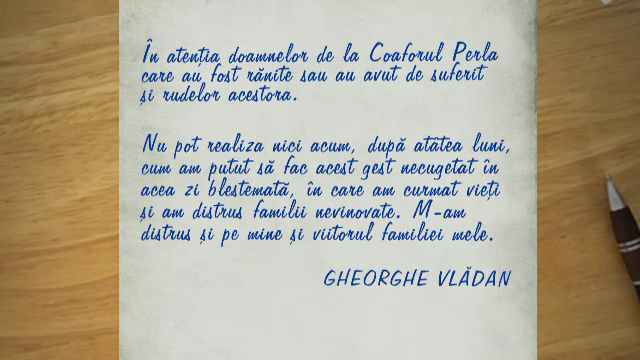 În atenția doamnelor de la Coaforul Perla
care au fost rănite sau au avut de suferit
și rudelor acestora.
Nu pot realiza nici acum, după atâtea luni,
cum am putut să fac acest gest necugetat în
acea zi blestemată, în care am curmat vieți
și am distrus familii nevinovate. M-am
distrus și pe mine și viitorul familiei mele.
GHEORGHE VLĂDAN